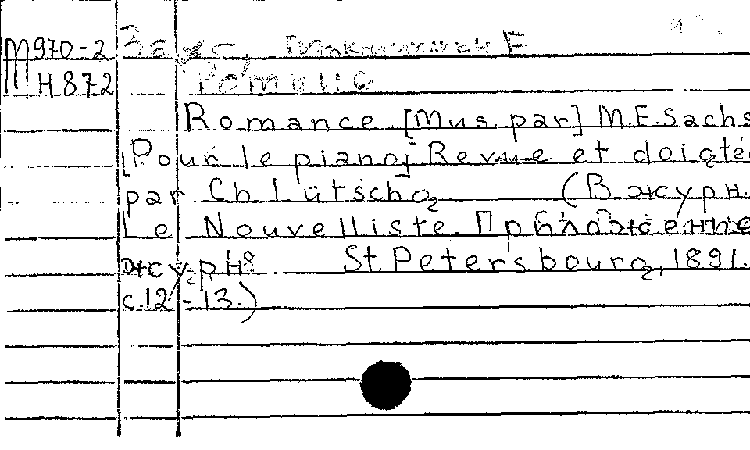 М970-2 Закс,
Н872
Romance [Mus. par] M.E. Sachs
[Pour le piano] Revue et doigtée
par Ch. Lütschg (В журн.
Le Nouvelliste. Приложение
журн. № 8 St. Petersbourg, 1891.
с. 12-13.)